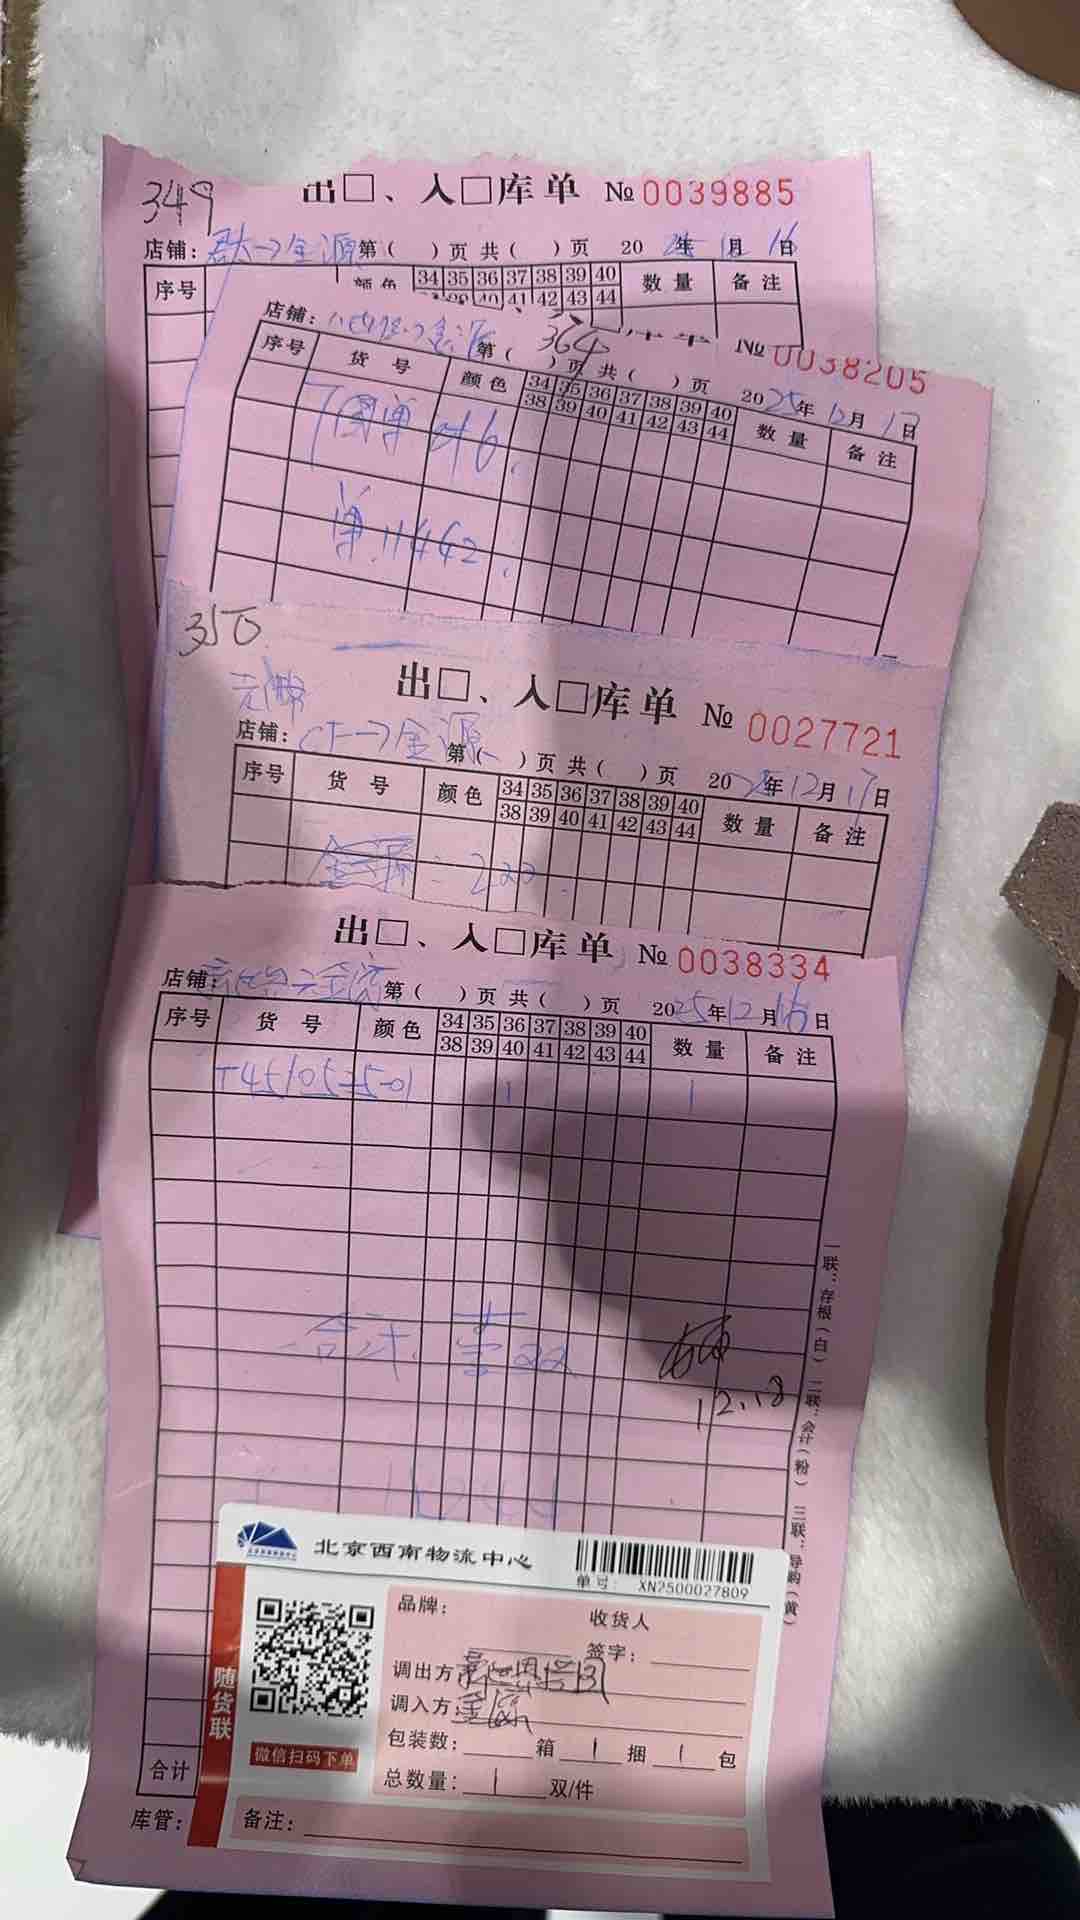 349
出□、入□库单 № 0039885
店铺: 金源 第( )页 共( )页 20 年 月16日
序号 颜色 34 35 36 37 38 39 40 数量 备注
41 42 43 44
364
№ 0038205
店铺: 金源 第( )页 共( )页 2025年12月17日
序号 货号 颜色 34 35 36 37 38 39 40 数量 备注
38 39 40 41 42 43 44
单.11442.
350
出□、入□库单 № 0027721
店铺: 金源 第( )页 共( )页 2025年12月17日
序号 货号 颜色 34 35 36 37 38 39 40 数量 备注
38 39 40 41 42 43 44
金源:
出□、入□库单 № 0038334
店铺: 第( )页 共( )页 2025年12月16日
序号 货号 颜色 34 35 36 37 38 39 40 数量 备注
38 39 40 41 42 43 44
T45105 1 1
合计. 壹双
12.18
一联:存根(白) 二联:会计(粉) 三联:导购(黄)
北京西南物流中心
单号: XN2500027809
随货联
微信扫码下单
品牌: 收货人
签字:
调出方:
调入方:金源
包装数: 箱 1 捆 1 包
总数量: 1 双/件
备注:
合计
库管: